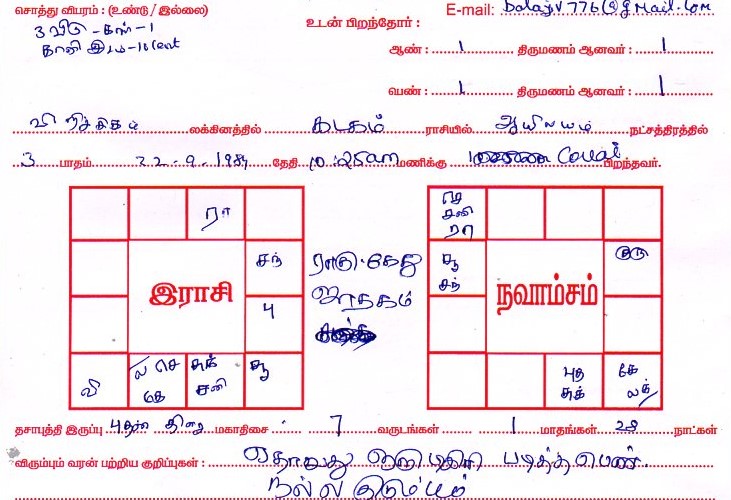 சொத்து விபரம் : (உண்டு / இல்லை)
3 வீடு - கார் - 1
காலி இடம் - 10 cent
உடன் பிறந்தோர் :
E-mail: balajiv776@gmail.com
ஆண் : 1 திருமணம் ஆனவர் : 1
பெண் : 1 திருமணம் ஆனவர் : 1
விருச்சிகம் லக்கினத்தில் கடகம் ராசியில் ஆயில்யம் நட்சத்திரத்தில்
3 பாதம் 22-9-1984 தேதி 10:25am மணிக்கு பிறந்தவர்.
ரா
சந்
பு
சூ
சுக் சனி
ல செ
கே
வி
இராசி
ராகு-கேது
ஜாதகம்
சனி
ரா
சூ
சந்
குரு
கே
லக்
புத
சுக்
நவாம்சம்
தசாபுத்தி இருப்பு புதன் திசை மகாதிசை 7 வருடங்கள் 1 மாதங்கள் 28 நாட்கள்
விரும்பும் வரன் பற்றிய குறிப்புகள் : ஏதாவது ஒரு டிகிரி படித்த பெண்.
நல்ல குடும்பம்